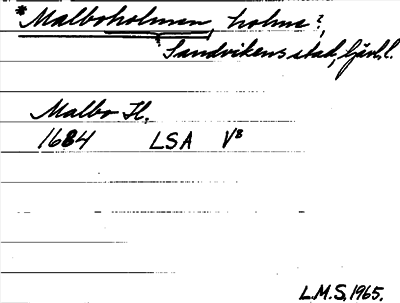 *Malboholmen, holme?,
Sandvikens stad, Gävl.l.
Malbo H.
1684 LSA V⁸
L.M.S. 1965.